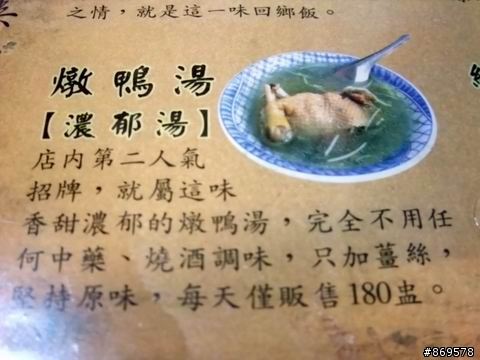 之情，就是這一味回鄉飯。
燉鴨湯
【濃郁湯】
店內第二人氣
招牌，就屬這味
香甜濃郁的燉鴨湯，完全不用任
何中藥、燒酒調味，只加薑絲，
堅持原味，每天僅販售180盅。
#869578